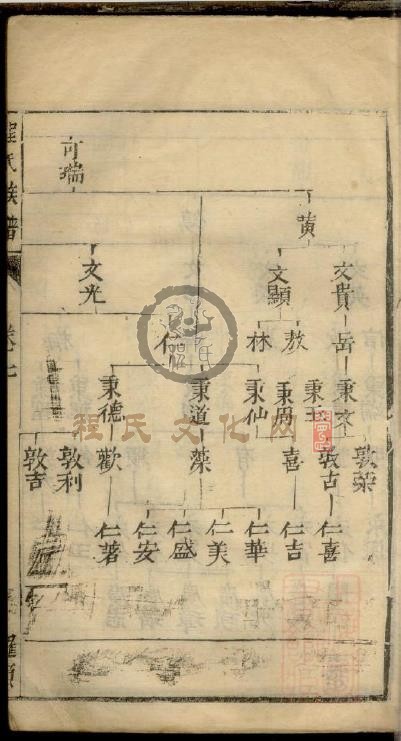 程氏族譜
可端
黄
文貴
文顯
文光
岳
敖
林
仁
秉文
秉王
秉周
秉仙
秉道
秉德
敦榮
敦古
喜
藻
歡
敦利
敦吉
仁喜
仁吉
仁華
仁美
仁盛
仁安
仁著
程氏文化网